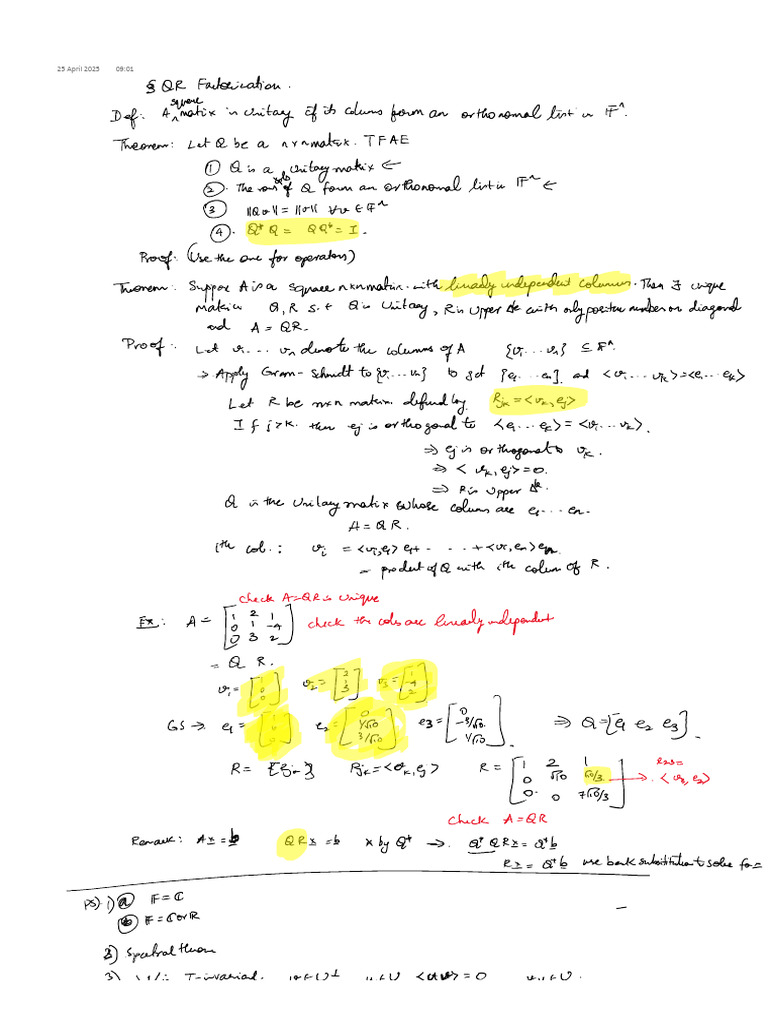 25 April 2025 09:01
§ QR Factorization.
Def: A square matrix is Unitary if its columns form an orthonormal list in 𝔽ⁿ.
Theorem: Let Q be a n×n matrix. TFAE
① Q is a Unitary matrix ←
②. The rows of Q form an orthonormal list in 𝔽ⁿ ←
③ ||Qv|| = ||v|| ∀v ∈ 𝔽ⁿ
④. Q*Q = QQ* = I.
Proof: (Use the one for operators)
Theorem: Suppose A is a square n×n matrix with linearly independent columns. Then ∃ unique
matrices Q, R s.t Q is Unitary, R is upper Δle with only positive number on diagonal
and A = QR.
Proof: Let v₁ ... vₙ denote the columns of A {v₁ ... vₙ} ⊆ 𝔽ⁿ.
→ Apply Gram-Schmidt to {v₁ ... vₙ} to get {e₁ ... eₙ} and <v₁ ... vₖ> = <e₁ ... eₖ>
Let R be n×n matrix defined by Rjk = <vₖ, ej>
If j>k. then ej is orthogonal to <e₁ ... eₖ> = <v₁ ... vₖ>.
⇒ ej is orthogonal to vₖ.
⇒ <vₖ, ej> = 0.
⇒ R is upper Δle.
Q is the Unitary matrix whose columns are e₁ ... eₙ.
A = QR.
ith col.: vᵢ = <vᵢ, e₁> e₁ + - . .. + <vᵢ, eₙ> eₙ.
= product of Q with ith column of R.
Check A=QR is unique
Ex: A = [1 2 1
0 1 -4
0 3 2] check the cols are linearly independent
= Q R.
v₁ = [1 0 0] v₂ = [2 1 3] v₃ = [1 -4 2]
GS → e₁ = [1 0 0] e₂ = [0 1/√10 3/√10] e₃ = [0 -3/√10 1/√10]. ⇒ Q = [e₁ e₂ e₃].
R = {Rjk} Rjk = <vₖ, ej> R = [1 2 1
0 √10 √10/3
0 0 7√10/3] → <v₃, e₂>
Check A=QR
Remark: Ax = b QRx = b × by Q* → Q*QRx = Q*b
Rx = Q*b use back substitution to solve for
PS). 1) ⓐ 𝔽 = ℂ
ⓑ 𝔽 = ℂ or ℝ
2) Spectral thm
3) T-invariant. <u,v> = 0